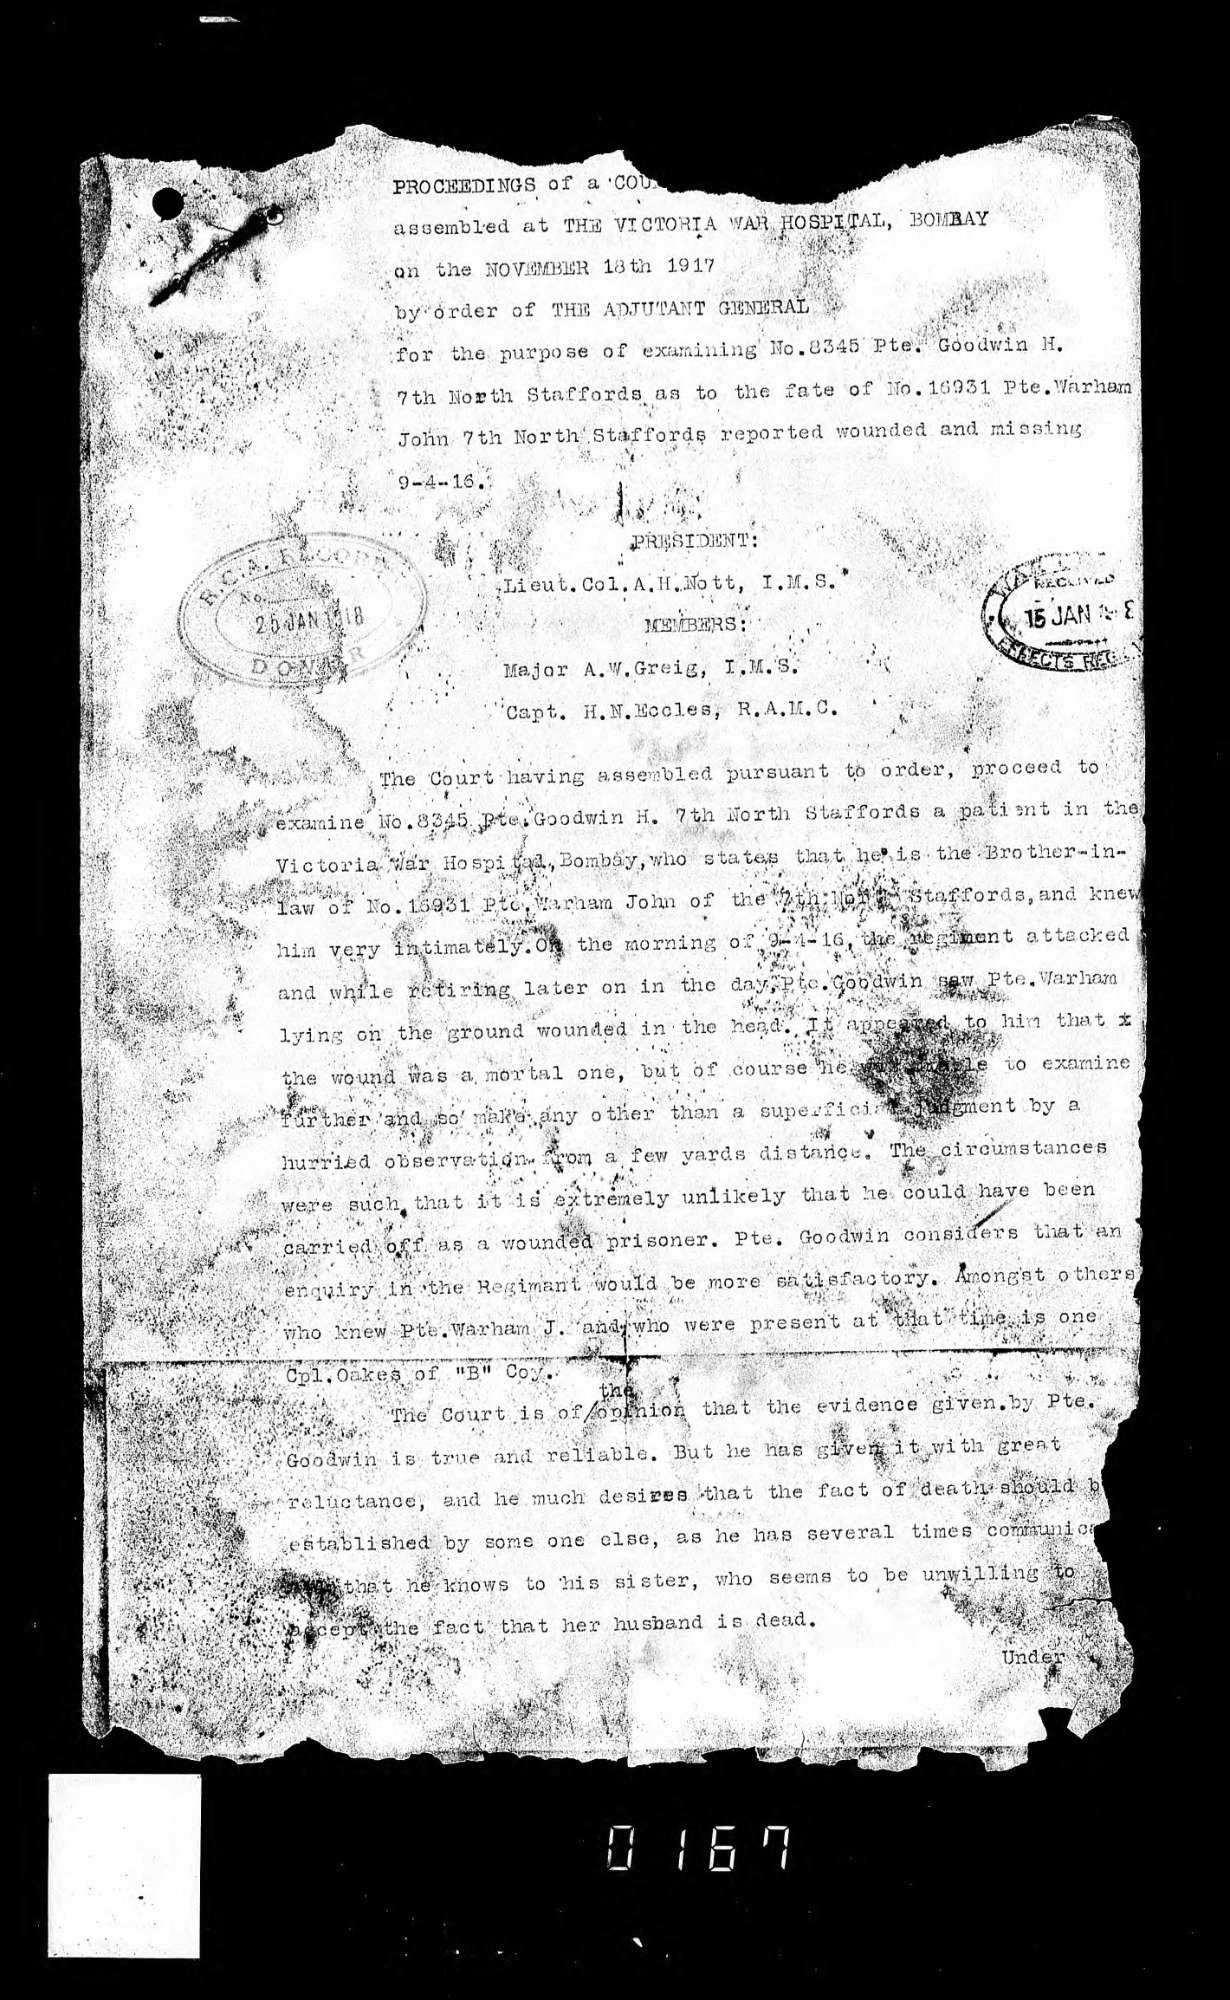 PROCEEDINGS of a COU
assembled at THE VICTORIA WAR HOSPITAL, BOMBAY
on the NOVEMBER 18th 1917
by order of THE ADJUTANT GENERAL
for the purpose of examining No.8345 Pte. Goodwin H.
7th North Staffords as to the fate of No.16931 Pte.Warham
John 7th North Staffords reported wounded and missing
9-4-16.
PRESIDENT:
Lieut.Col.A.H.Nott, I.M.S.
MEMBERS:
Major A.W.Greig, I.M.S.
Capt. H.N.Eccles, R.A.M.C.
R.C.A. RECORD
No.
DOVER
RECEIVED
15 JAN
EFFECTS
The Court having assembled pursuant to order, proceed to
examine No.8345 Pte.Goodwin H. 7th North Staffords a patient in the
Victoria War Hospital,Bombay,who states that he is the Brother-in-
law of No.16931 Pte.Warham John of the 7th North Staffords,and knew
him very intimately.On the morning of 9-4-16, the regiment attacked
and while retiring later on in the day,Pte.Goodwin saw Pte.Warham
lying on the ground wounded in the head. It appeared to him that x
the wound was a mortal one, but of course he to examine
further and so make any other than a superficial judgment by a
hurried observation from a few yards distance. The circumstances
were such that it is extremely unlikely that he could have been
carried off as a wounded prisoner. Pte. Goodwin considers that an
enquiry in the Regimant would be more satisfactory. Amongst others
who knew Pte.Warham J. and who were present at that time is one
Cpl.Oakes of "B" Coy.
the
The Court is of/opinion that the evidence given.by Pte.
Goodwin is true and reliable. But he has given it with great
reluctance, and he much desires that the fact of death should b
established by some one else, as he has several times communica
that he knows to his sister, who seems to be unwilling to
accept the fact that her husband is dead.
Under
0167